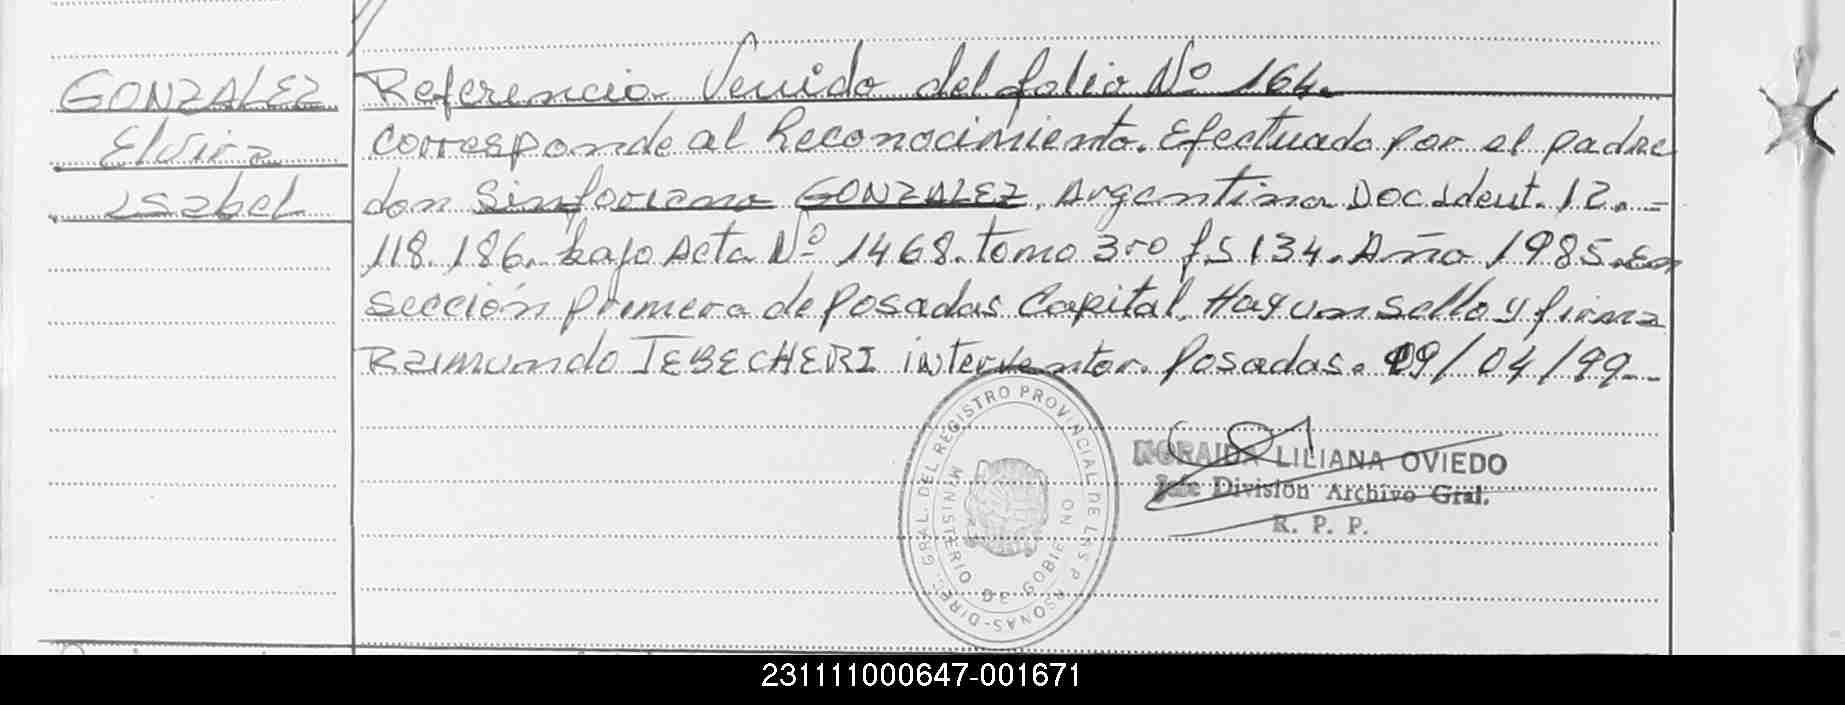 GONZALEZ
Elvira
Isabel
Referencia Venido del folio Nº 164.
Corresponde al Reconocimiento. Efectuado por el padre
don Sinforiano GONZALEZ, Argentino Doc. Ident. 12.-
118.186. bajo Acta Nº 1468. tomo 3ro fs 134. Año 1985. En
Sección primera de Posadas Capital. Hay un sello y firma
Raimundo JEBECHERI interventor. Posadas. 09/04/99--
NORAIDA LILIANA OVIEDO
Jefe División Archivo Gral.
R. P. P.
DIREC. GRAL. DEL REGISTRO PROVINCIAL DE LAS PERSONAS
MINISTERIO DE GOBIERNO
231111000647-001671